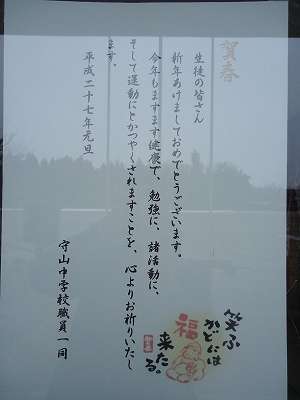 賀春
生徒の皆さん
新年あけましておめでとうございます。
今年もますます健康で、勉強に、諸活動に、
そして運動にとかつやくされますことを、心よりお祈りいたし
ます。
平成二十七年元旦
守山中学校職員一同
笑ふ
かどには
福
来たる。